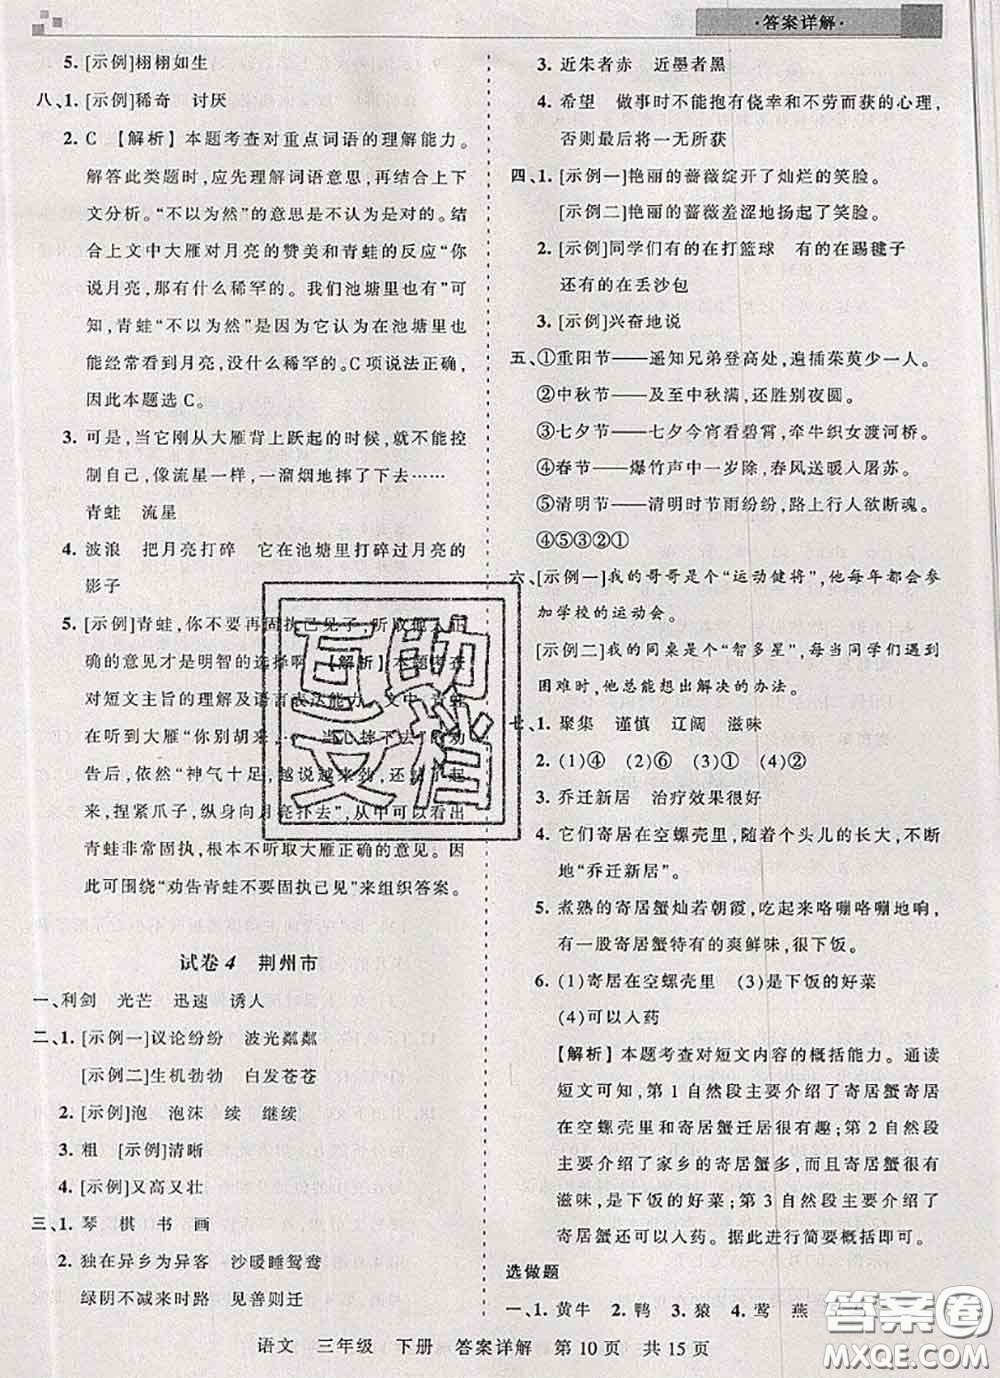 ·答案详解·
5. [示例]栩栩如生
八、1. [示例]稀奇 讨厌
2. C 【解析】本题考查对重点词语的理解能力。
解答此类题时,应先理解词语意思,再结合上下
文分析。“不以为然”的意思是不认为是对的。结
合上文中大雁对月亮的赞美和青蛙的反应“你
说月亮,那有什么稀罕的。我们池塘里也有”可
知,青蛙“不以为然”是因为它认为在池塘里也
能经常看到月亮,没什么稀罕的。C项说法正确,
因此本题选C。
3. 可是,当它刚从大雁背上跃起的时候,就不能控
制自己,像流星一样,一溜烟地摔了下去……
青蛙 流星
4. 波浪 把月亮打碎 它在池塘里打碎过月亮的
影子
5. [示例]青蛙,你不要再固执己见了,听取他人正
确的意见才是明智的选择啊。【解析】本题考查
对短文主旨的理解及语言表达能力。文中,青蛙
在听到大雁“你别胡来,……当心摔下去”的劝
告后,依然“神气十足,越说越来劲,还站了起
来,捏紧爪子,纵身向月亮扑去”,从中可以看出
青蛙非常固执,根本不听取大雁正确的意见。因
此可围绕“劝告青蛙不要固执己见”来组织答案。
试卷4 荆州市
一、利剑 光芒 迅速 诱人
二、1. [示例一]议论纷纷 波光粼粼
[示例二]生机勃勃 白发苍苍
2. [示例]泡 泡沫 续 继续
3. 粗 [示例]清晰
4. [示例]又高又壮
三、1. 琴 棋 书 画
2. 独在异乡为异客 沙暖睡鸳鸯
绿阴不减来时路 见善则迁
3. 近朱者赤 近墨者黑
4. 希望 做事时不能抱有侥幸和不劳而获的心理,
否则最后将一无所获
四、1. [示例一]艳丽的蔷薇绽开了灿烂的笑脸。
[示例二]艳丽的蔷薇羞涩地扬起了笑脸。
2. [示例]同学们有的在打篮球 有的在踢毽子
还有的在丢沙包
3. [示例]兴奋地说
五、①重阳节——遥知兄弟登高处,遍插茱萸少一人。
②中秋节——及至中秋满,还胜别夜圆。
③七夕节——七夕今宵看碧霄,牵牛织女渡河桥。
④春节——爆竹声中一岁除,春风送暖入屠苏。
⑤清明节——清明时节雨纷纷,路上行人欲断魂。
④⑤③②①
六、[示例一]我的哥哥是个“运动健将”,他每年都会参
加学校的运动会。
[示例二]我的同桌是个“智多星”,每当同学们遇到
困难时,他总能想出解决的办法。
七、1. 聚集 谨慎 辽阔 滋味
2. (1)④ (2)⑥ (3)① (4)②
3. 乔迁新居 治疗效果很好
4. 它们寄居在空螺壳里,随着个头儿的长大,不断
地“乔迁新居”。
5. 煮熟的寄居蟹灿若朝霞,吃起来咯嘣咯嘣地响,
有一股寄居蟹特有的爽鲜味,很下饭。
6. (1)寄居在空螺壳里 (3)是下饭的好菜
(4)可以入药
【解析】本题考查对短文内容的概括能力。通读
短文可知,第1自然段主要介绍了寄居蟹寄居
在空螺壳里和寄居蟹迁居很有趣;第2自然段
主要介绍了家乡的寄居蟹多,而且寄居蟹很有
滋味,是下饭的好菜;第3自然段主要介绍了
寄居蟹还可以入药。据此进行简要概括即可。
选做题
一、1. 黄牛 2. 鸭 3. 猿 4. 莺 燕
语文 三年级 下册 答案详解 第10页 共15页
互助文档
答案圈
MXQE.COM